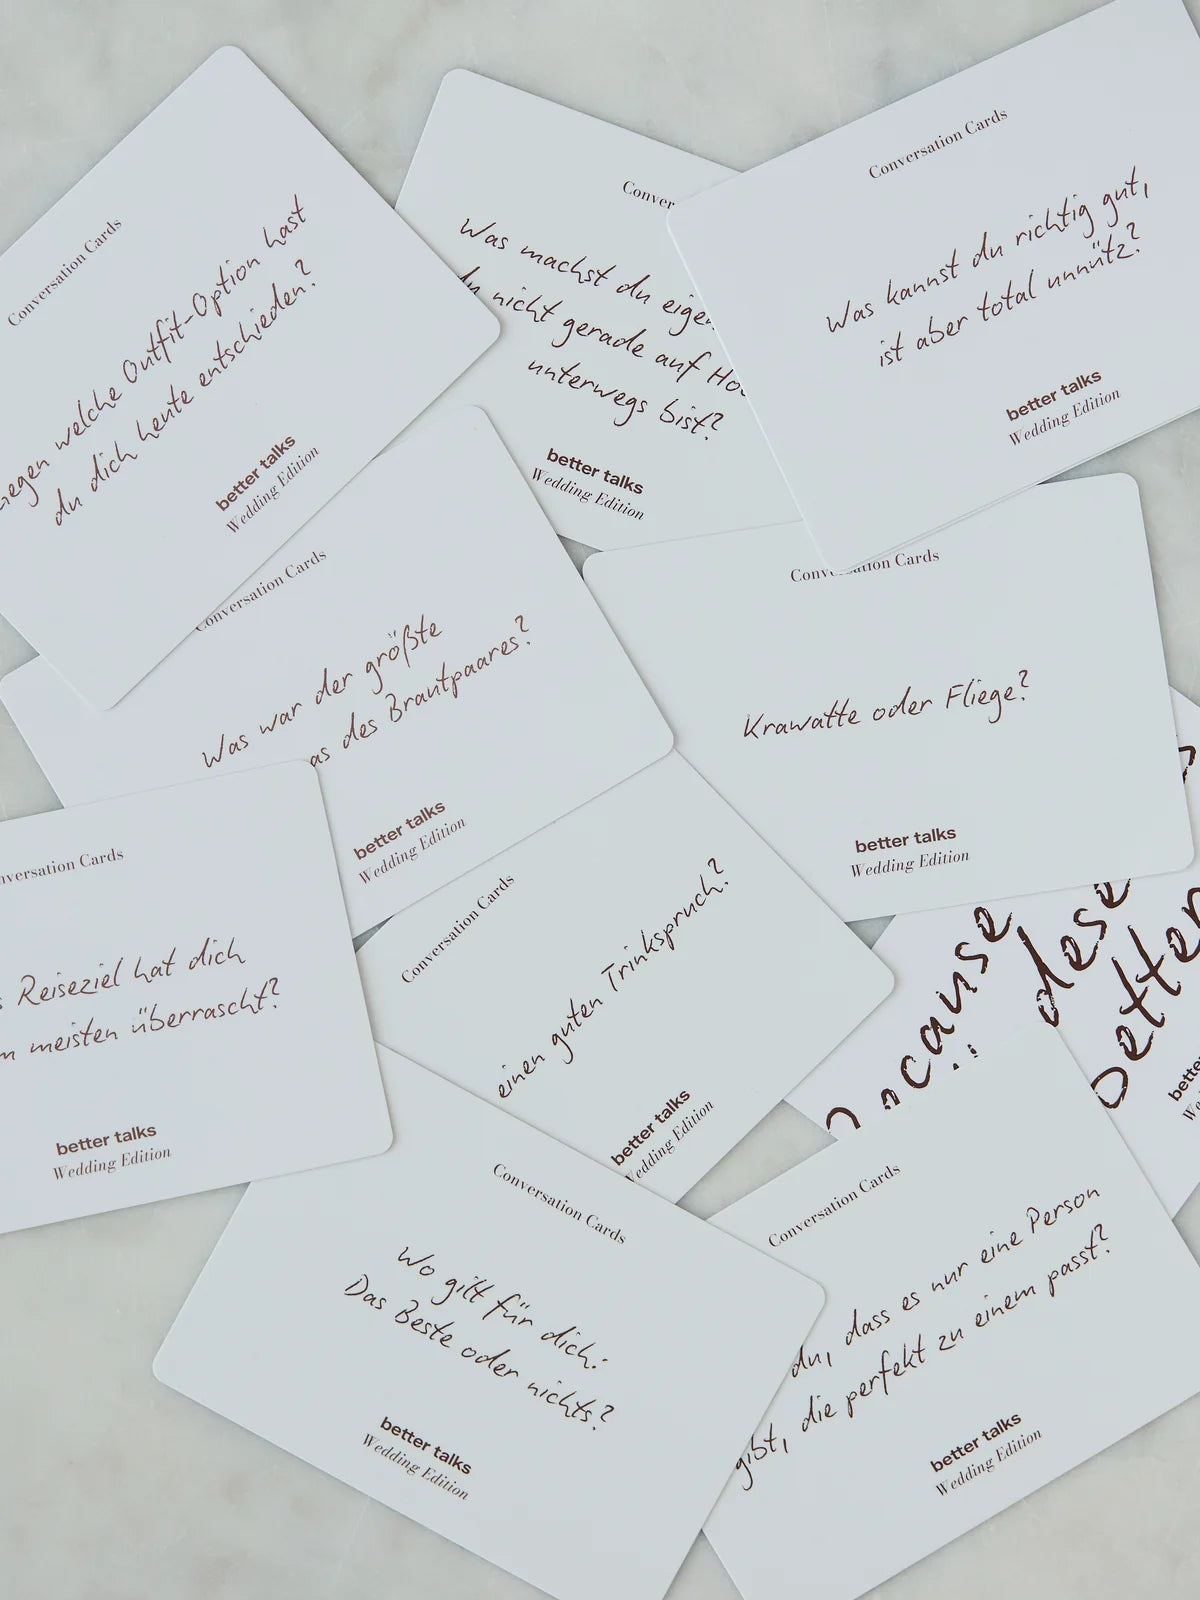 Conversation Cards
welche Outfit-Option hast
du dich heute entschieden?
better talks
Wedding Edition
Was machst du
du nicht gerade auf
unterwegs bist?
better talks
Wedding Edition
Conversation Cards
Was kannst du richtig gut,
ist aber total unnütz?
better talks
Wedding Edition
Conversation Cards
Was war der größte
des Brautpaares?
better talks
Wedding Edition
Cards
Krawatte oder Fliege?
better talks
Wedding Edition
Cards
Reiseziel hat dich
meisten überrascht?
better talks
Wedding Edition
Conversation Cards
einen guten Trinkspruch?
better talks
Wedding Edition
Conversation Cards
Wo gilt für dich:
Das Beste oder nichts?
better talks
Wedding Edition
Conversation Cards
du, dass es nur eine Person
gibt, die perfekt zu einem passt?
better talks
Wedding Edition